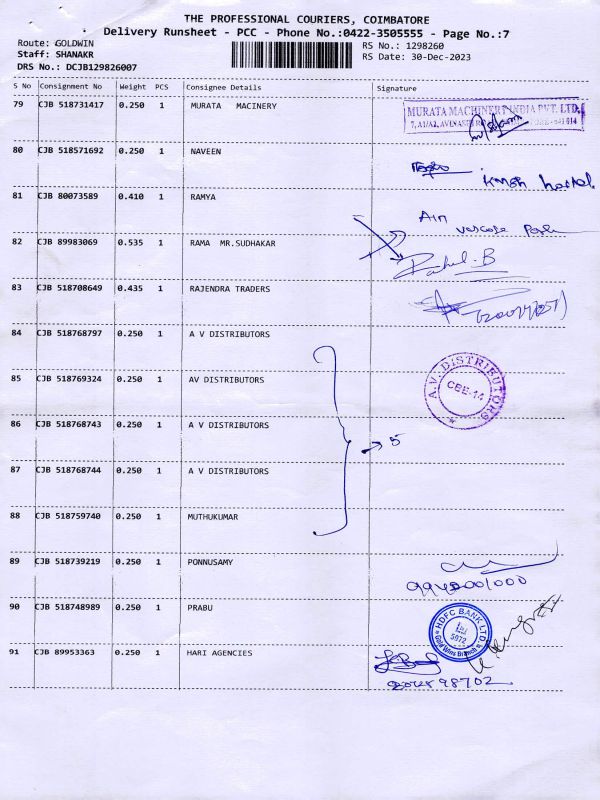 THE PROFESSIONAL COURIERS, COIMBATORE
Delivery Runsheet - PCC - Phone No.:0422-3505555 - Page No.:7
Route: GOLDWIN
Staff: SHANAKR
DRS No.: DCJB129826007
RS No.: 1298260
RS Date: 30-Dec-2023
S No Consignment No Weight PCS Consignee Details Signature
79 CJB 518731417 0.250 1 MURATA MACINERY
MURATA MACHINERY INDIA PVT. LTD.
80 CJB 518571692 0.250 1 NAVEEN
81 CJB 80073589 0.410 1 RAMYA
82 CJB 89983069 0.535 1 RAMA MR.SUDHAKAR
Rahul.B
83 CJB 518708649 0.435 1 RAJENDRA TRADERS
84 CJB 518768797 0.250 1 A V DISTRIBUTORS
85 CJB 518769324 0.250 1 AV DISTRIBUTORS
A.V. DISTRIBUTORS
CBE-14
86 CJB 518768743 0.250 1 A V DISTRIBUTORS
→ 5
87 CJB 518768744 0.250 1 A V DISTRIBUTORS
88 CJB 518759740 0.250 1 MUTHUKUMAR
89 CJB 518739219 0.250 1 PONNUSAMY
90 CJB 518748989 0.250 1 PRABU
HDFC BANK LTD.
5072
Gold Wins Branch
91 CJB 89953363 0.250 1 HARI AGENCIES